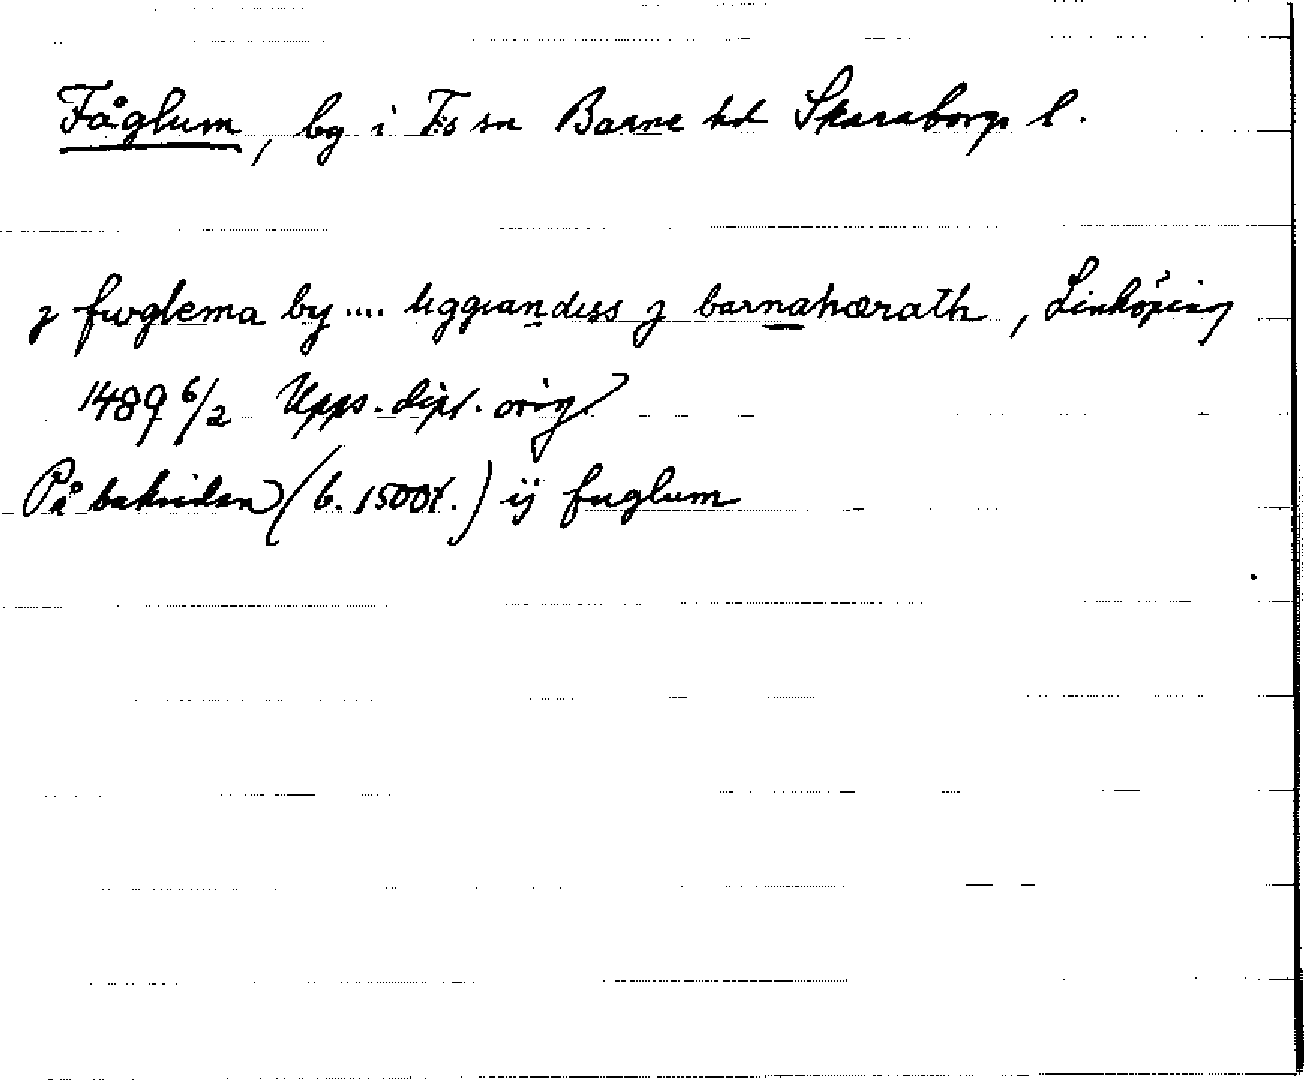 Fåglum, by i Fs sn Barne hd Skaraborgs l.
j fwglema by .... liggiandiss j barnahærath, Linköping
1489 6/2 Upps. dipl. orig.
På baksidan (b. 1500t.) ij fuglum